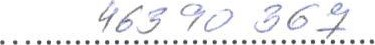 46390 367